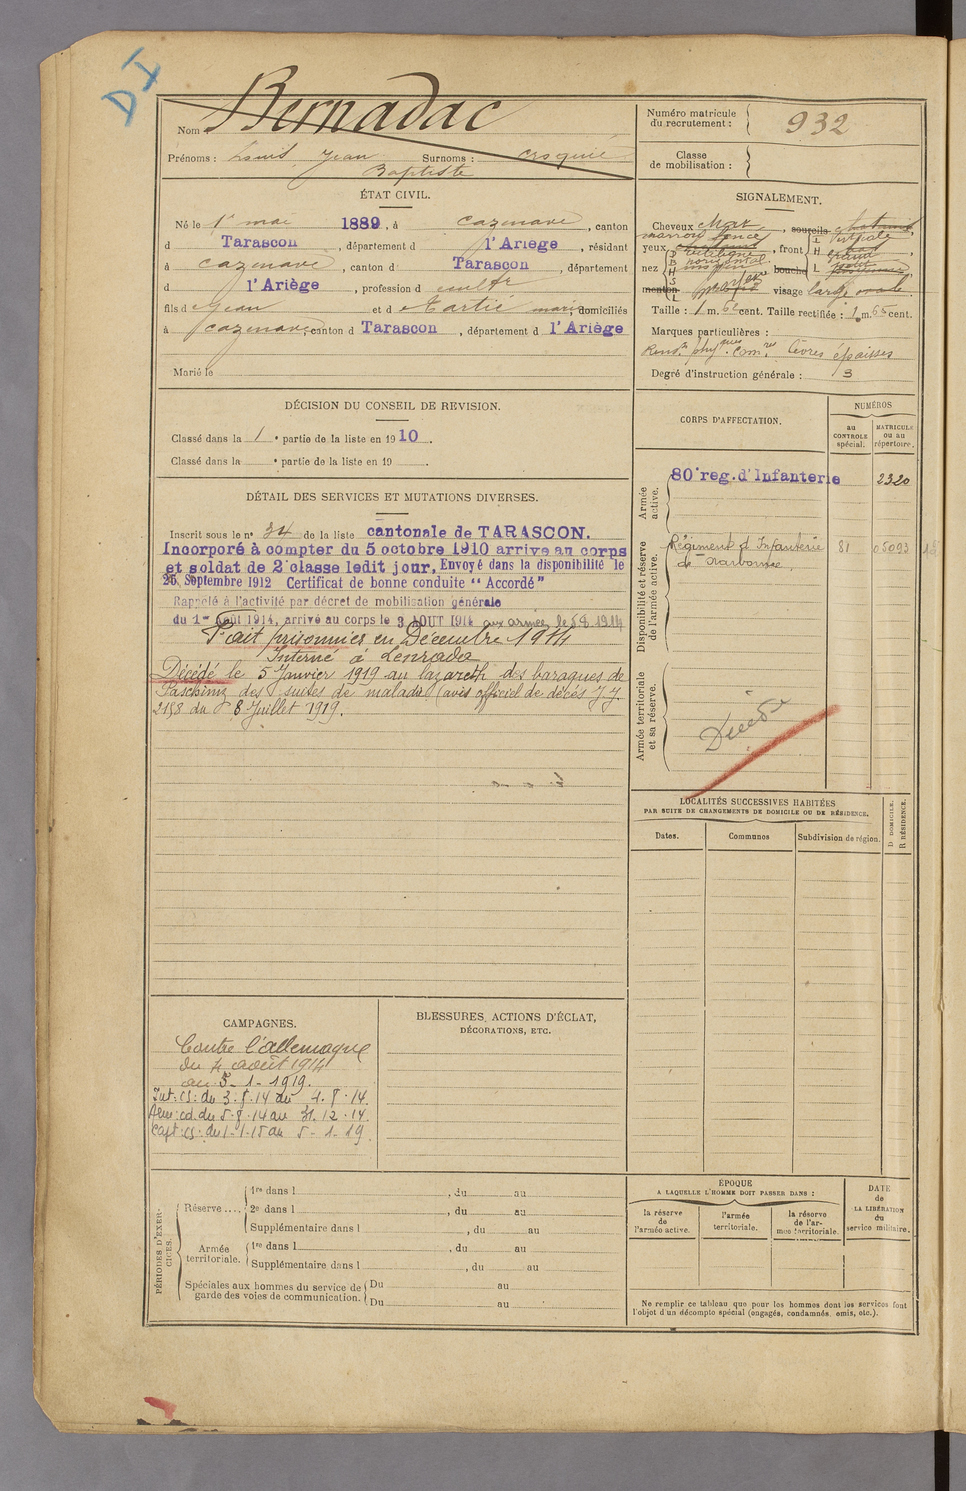 DI
Nom Bernadac
Prénoms : Louis Jean Surnoms : Croquié
Baptiste
ÉTAT CIVIL.
Né le 1er mai 1889, à Cazenave, canton
d Tarascon, département d l'Ariège, résidant
à Cazenave, canton d Tarascon, département
d l'Ariège, profession d cultr
fils d Jean et d Tartié Marie, domiciliés
à Cazenave, canton d Tarascon, département d l'Ariège
Marié le
DÉCISION DU CONSEIL DE REVISION.
Classé dans la 1e partie de la liste en 1910.
Classé dans la e partie de la liste en 19 .
DÉTAIL DES SERVICES ET MUTATIONS DIVERSES.
Inscrit sous le n° 34 de la liste cantonale de TARASCON.
Incorporé à compter du 5 octobre 1910 arrive au corps
et soldat de 2e classe ledit jour. Envoyé dans la disponibilité le
25 Septembre 1912 Certificat de bonne conduite "Accordé"
Rappelé à l'activité par décret de mobilisation générale
du 1er Août 1914, arrivé au corps le 3 AOUT 1914 aux armées le 5.8.1914
Fait prisonnier en Décembre 1914
Interné à
Décédé le 5 Janvier 1919 au lazareth des baraques de
des suites de maladie (avis officiel de décès J.J.
2158 du 8 Juillet 1919.
CAMPAGNES.
Contre l'Allemagne
du 4 août 1914
au 5-1-1919.
Int: CS: du 3.8.14 au 4.8.14
Arm: cd. du 5.8.14 au 31.12.14
Capt: CS: du 1-1-15 au 5-1-19
BLESSURES, ACTIONS D'ÉCLAT,
DÉCORATIONS, ETC.
PÉRIODES D'EXERCICES.
Réserve ....
1re dans l , du au
2e dans l , du au
Supplémentaire dans l , du au
Armée territoriale.
1re dans l , du au
Supplémentaire dans l , du au
Spéciales aux hommes du service de garde des voies de communication.
Du au
Du au
Numéro matricule du recrutement : 932
Classe de mobilisation :
SIGNALEMENT.
Cheveux chat, sourcils chatains,
marron foncé
yeux , front
nez , bouche
menton visage large ovale
Taille : 1 m. cent. Taille rectifiée : 1 m. 65 cent.
Marques particulières :
Rensts physques comres lèvres épaisses
Degré d'instruction générale : 3
CORPS D'AFFECTATION.
NUMÉROS
au CONTROLE spécial.
MATRICULE ou au répertoire.
Armée active.
80e reg. d'Infanterie 2320
Disponibilité et réserve de l'armée active.
Régiment d'Infanterie 81 05093
de Narbonne.
Armée territoriale et sa réserve.
Décédé
LOCALITÉS SUCCESSIVES HABITÉES
PAR SUITE DE CHANGEMENTS DE DOMICILE OU DE RÉSIDENCE.
Dates. Communes Subdivision de région. D DOMICILE. R RÉSIDENCE.
ÉPOQUE
A LAQUELLE L'HOMME DOIT PASSER DANS :
la réserve de l'armée active.
l'armée territoriale.
la réserve de l'armée territoriale.
DATE de LA LIBÉRATION du service militaire.
Ne remplir ce tableau que pour les hommes dont les services font
l'objet d'un décompte spécial (engagés, condamnés, omis, etc.).